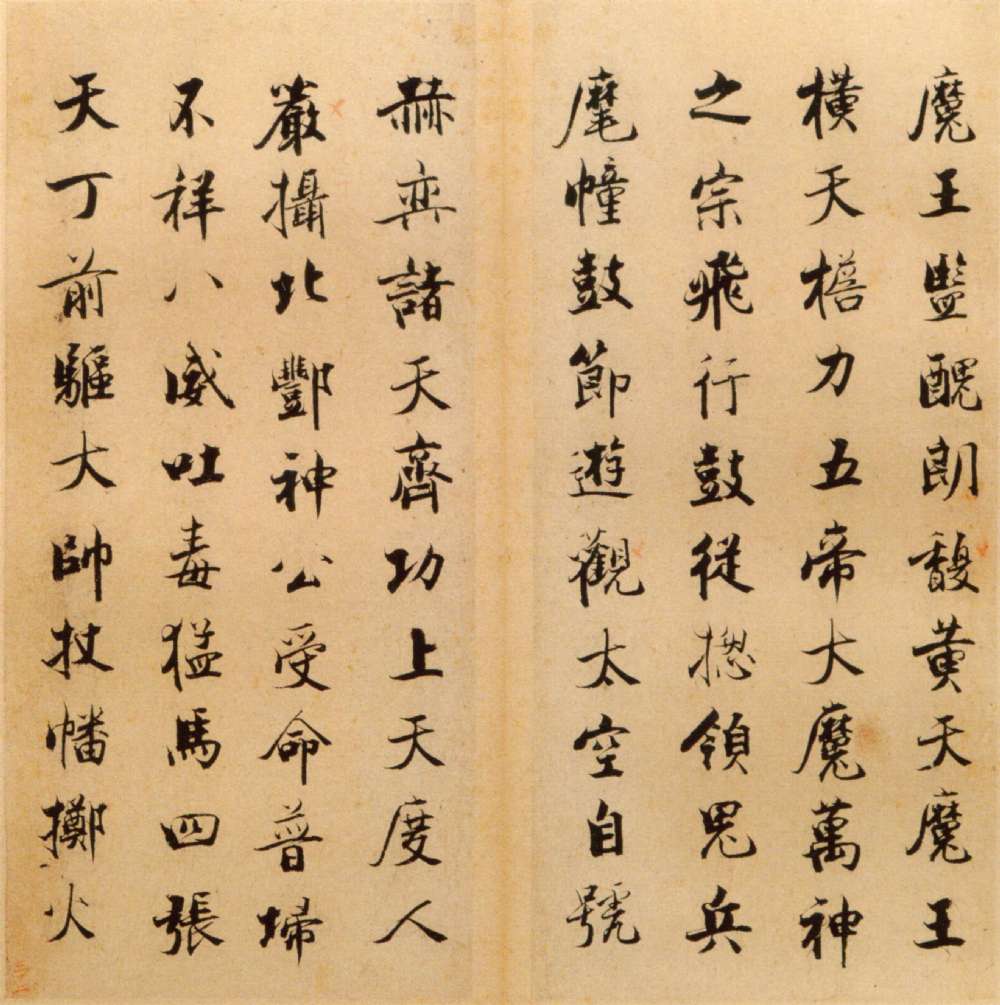 魔王監醜朗馥黄天魔王
横天檐力五帝大魔萬神
之宗飛行鼓從摠領鬼兵
麾幢鼓節遊觀太空自號
赫弈諸天齊功上天度人
嚴攝北酆神公受命普掃
不祥八威吐毒猛馬四張
天丁前驅大帥杖幡擲火